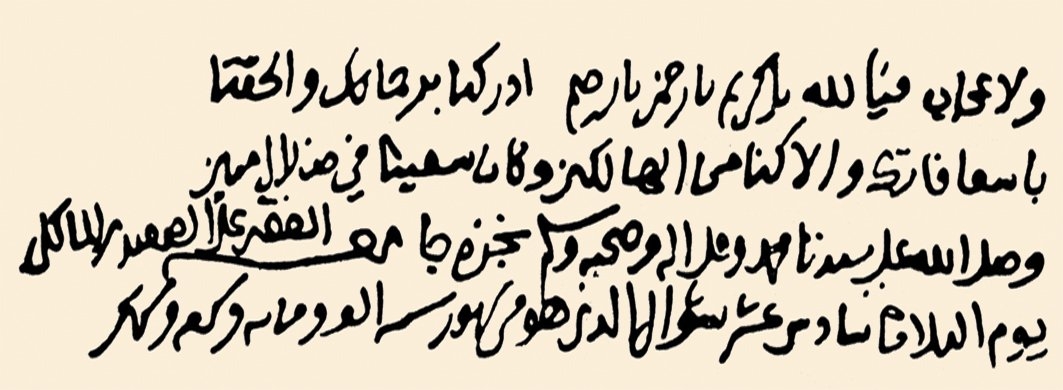 ولا عجاب فيا لله يا كريم يا رحمن يا رحيم ادركنا برحماتك والحقنا
باسعافاتك والا كنا من الهالكين وكان سعينا في ضلال مبين
وصلى الله على سيدنا محمد وعلى اله وصحبه وسلم جامعه الفقير علي الصعيدي المالكي
يوم الثلاثاء سادس عشر شوال الذي هو من شهور سنة الف ومائة